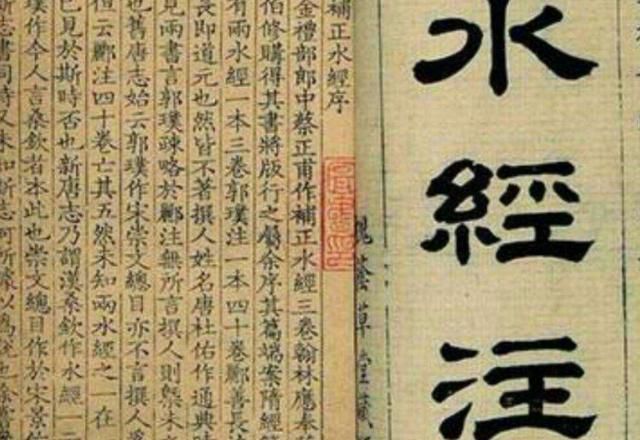 水經注
槐蔭草堂藏
補正水經序
金禮部郎中蔡正甫作補正水經三卷翰林應奉
伯修購得其書將版行之屬余序其篇端案隋經
有兩水經一本三卷郭璞注一本四十卷酈善長
長即道元也然皆不著撰人姓名唐杜佑作通典時
見兩書言郭璞疎略於酈注無所言撰人則槩未
也舊唐志始云郭璞作宋崇文總目亦不言撰人為
但云酈注四十卷亡其五然未知兩水經之一在
已見於斯時否也新唐志乃謂漢桑欽作水經一
璞作今人言桑欽者本此也崇文總目作於宋景
志書同時又未知新志何所據以為說也